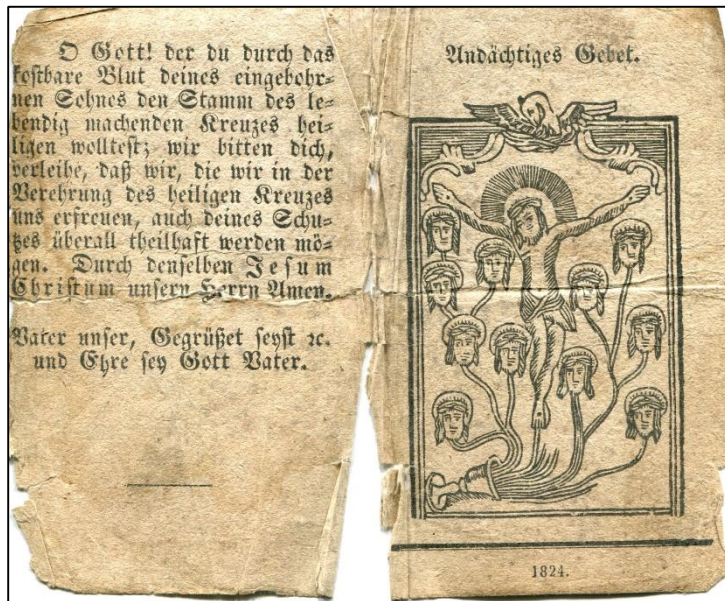 O Gott! der du durch das
kostbare Blut deines eingebohr-
nen Sohnes den Stamm des le-
bendig machenden Kreuzes hei-
ligen wolltest; wir bitten dich,
verleihe, daß wir, die wir in der
Verehrung des heiligen Kreuzes
uns erfreuen, auch deines Schu-
tzes überall theilhaft werden mö-
gen. Durch denselben Jesum
Christum unsern Herrn Amen.
Vater unser, Gegrüßet seyst ꝛc.
und Ehre sey Gott Vater.
Andächtiges Gebet.
1824.